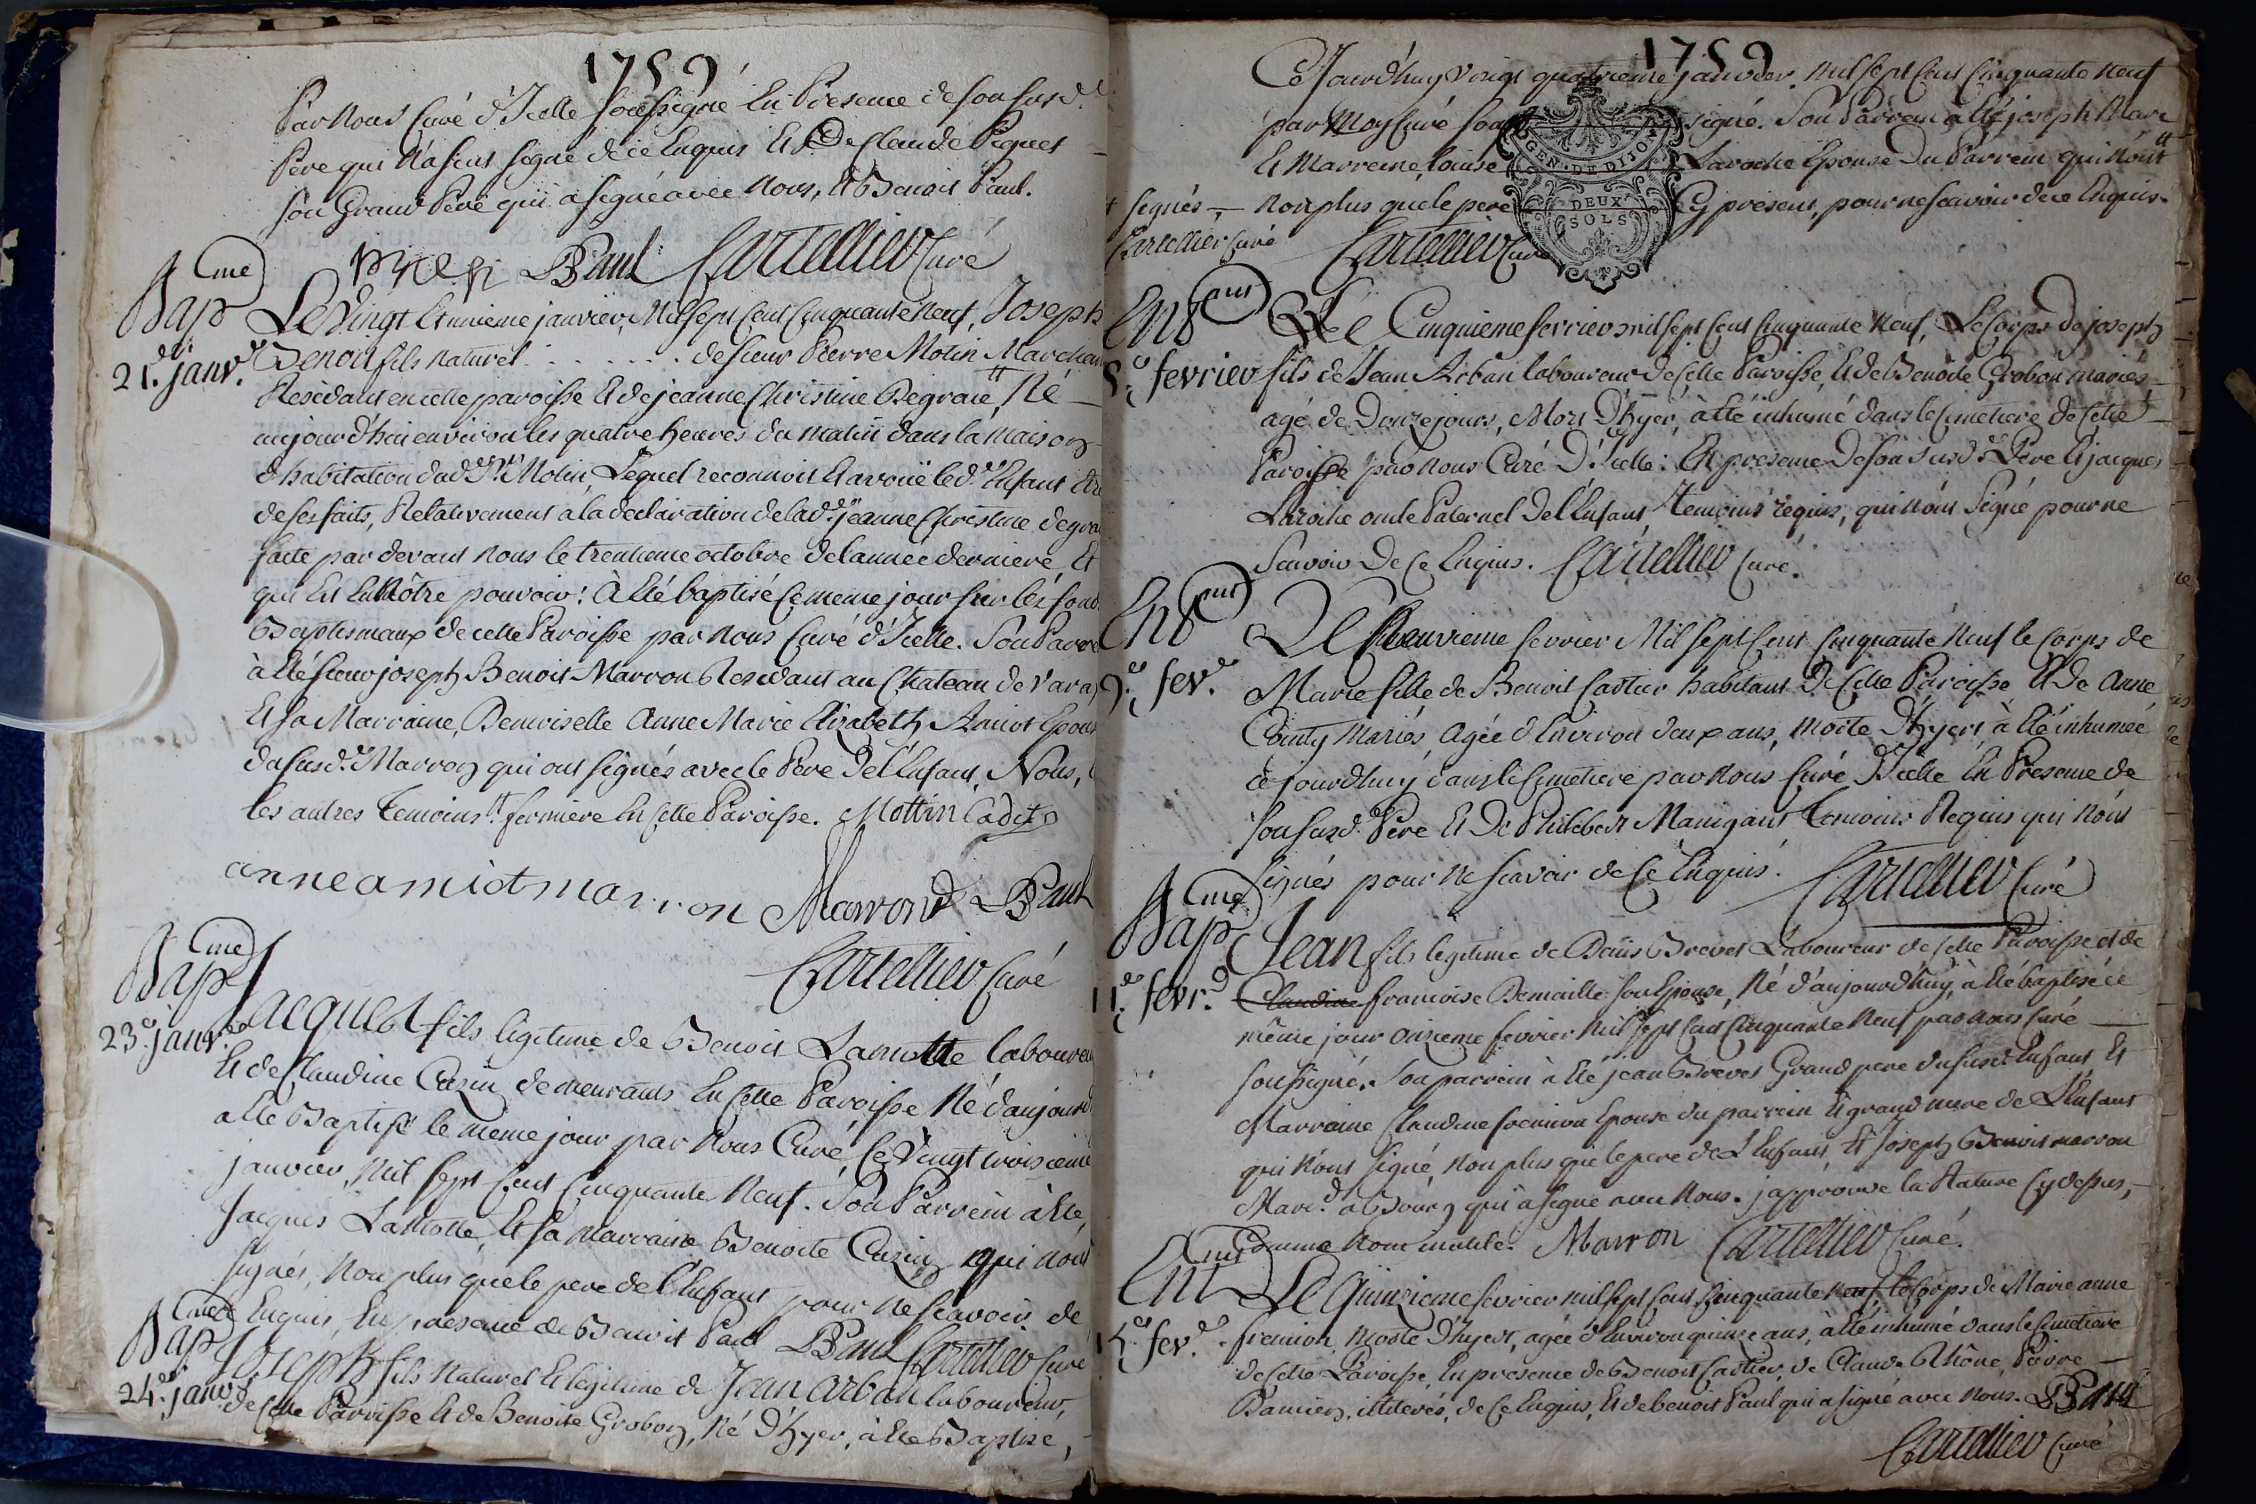 1759
par nous Curé d'Icelle soussigné En Presence de son susd.
Pere qui n'a sceu signé de ce Enquis Et De Claude Piquet
son Grand Pere qui a signé avec nous, Et Benoit Paul.
BPaul Cartellier Curé
Bapme
21.e janv.r
Le Vingt Et unieme janvier, Mil sept Cent Cinquante neuf, Joseph
Benoit fils naturel . . . . . . de sieur Pierre Motin Marchan
Residant en cette paroisse Et de jeanne Christine Degraie, Né
aujourd'hui environ les quatre heures du matin dans la maison
d'habitation dud. Sr. Motin, Lequel reconnoit Et avouë led. Enfant Etre
de ses faits, Relativement a la declaration de lad. jeanne Christine degra
faite par devant nous le trentieme octobre de l'année derniere, Et
qui Est En Nôtre pouvoir: À Eté baptisé Ce meme jour sur les fond
Baptismaux de cette Paroisse par nous Curé d'Icelle. Son Parre
à Eté sieur joseph Benoit Marron Residant au Chateau de Vara
Et sa Marraine, Demoiselle Anne Marie Elizabeth Amiot Epous
du susd. Marron qui ont signés avec le Pere de l'Enfant, Nous,
les autres Temoins fermiere En Cette Paroisse. Mottin Cadet
anne amiot marron Marron BPaul
Cartellier Curé
Bapme
23.e janv.r
Jacques fils legitime de Benoit Lamotte laboureu
Et de Claudine Cazin demeurants En Cette Paroisse Né d'aujourd
a Eté Baptisé le meme jour par nous Curé, Ce Vingt troisieme
janvier, Mil sept Cent Cinquante Neuf. Son Parrein à Eté,
Jacques Lamotte, Et sa marraine Benoite Cazin qui n'ont
signés, Non plus que le pere de l'Enfant pour ne scavoir de
Ce Enquis, En presence de Benoit Paul BPaul Cartellier Curé
Bapme
24.e janv.r
Joseph fils naturel Et legitime de Jean Arban laboureur,
de Cette Paroisse Et de Benoite Grobon, Né D'hyer, à Eté Baptisé,
1759
Ce Jourd'huy Vingt quatrieme janvier, Mil sept Cent Cinquante neuf
par Moy Curé sous signé. Son Parrein à Eté joseph Marc
Et Marreine, louise Laroche Epouse Du Parrein qui n'ont
signés, Non plus que le pere Cy présent, pour ne scavoir de ce Enquis.
Cartellier Curé Cartellier Curé
GEN. DE DIJON
DEUX
SOLS
Entmt
5.e fevrier
Le Cinquieme fevrier mil sept Cent Cinquante neuf, Le Corps de joseph
fils de Jean Arban laboureur de Cette Paroisse, Et de Benoite Grobon mariés
agé de Douze jours, Mort D'hyer, à Eté inhumé dans le Cimetiere de Cette
Paroisse par nous Curé D'Icelle: En presence De son susd. Pere Et jacques
Laroche oncle Paternel De l'Enfant, temoins requis, qui n'ont Signé pour ne
Scavoir De Ce Enquis. Cartellier Curé.
Entmt
9.e fev.r
Le Neuvieme fevrier Mil sept Cent Cinquante Neuf le Corps de
Marie fille de Benoit Cartier habitant De Cette Paroisse Et De Anne
Conty Mariés, Agée d'Environ deux ans, morte D'hyer, à Eté inhumée
ce jourdhuy dans le Cimetiere par nous Curé D'Icelle En Presence de
son susd. Pere Et De Philebert Manigant Temoins Requis qui n'ont
signés pour ne scavoir de Ce Enquis. Cartellier Curé
Bapme
11.e fevr.r
Jean fils legitime de Denis Brevet Laboureur de Cette Paroisse et de
Claudine francoise Demaille son Epouse, Né d'aujourdhuy, à Eté baptisé ce
même jour onzieme fevrier mil sept Cent Cinquante neuf par nous Curé
soussigné. Son parrein à Eté jean Brevet Grand pere du susd. Enfant, Et
Marraine Claudine fremion Epouse du parrein Et grand mere de L'Enfant
qui n'ont signé, Non plus que le pere de L'Enfant, Et Joseph Benoit marron
Marc.d à Bourg qui à signé avec nous. japprouve la Rature Cy dessus,
Comme nom inutile. Marron Cartellier Curé.
Entmt
15.e fev.r
Le Quinzieme fevrier mil sept Cent Cinquante neuf, le Corps de Marie anne
fremion, morte D'hyer, agée d'Environ quinze ans, à Eté inhumé dans le Cimetiere
de Cette Paroisse, En presence de Benoit Cartier, de Claude Rhône, Pierre
Damien, illiterés, de Ce Enquis, Et de benoit Paul qui a signé avec nous. BPaul
Cartellier Curé